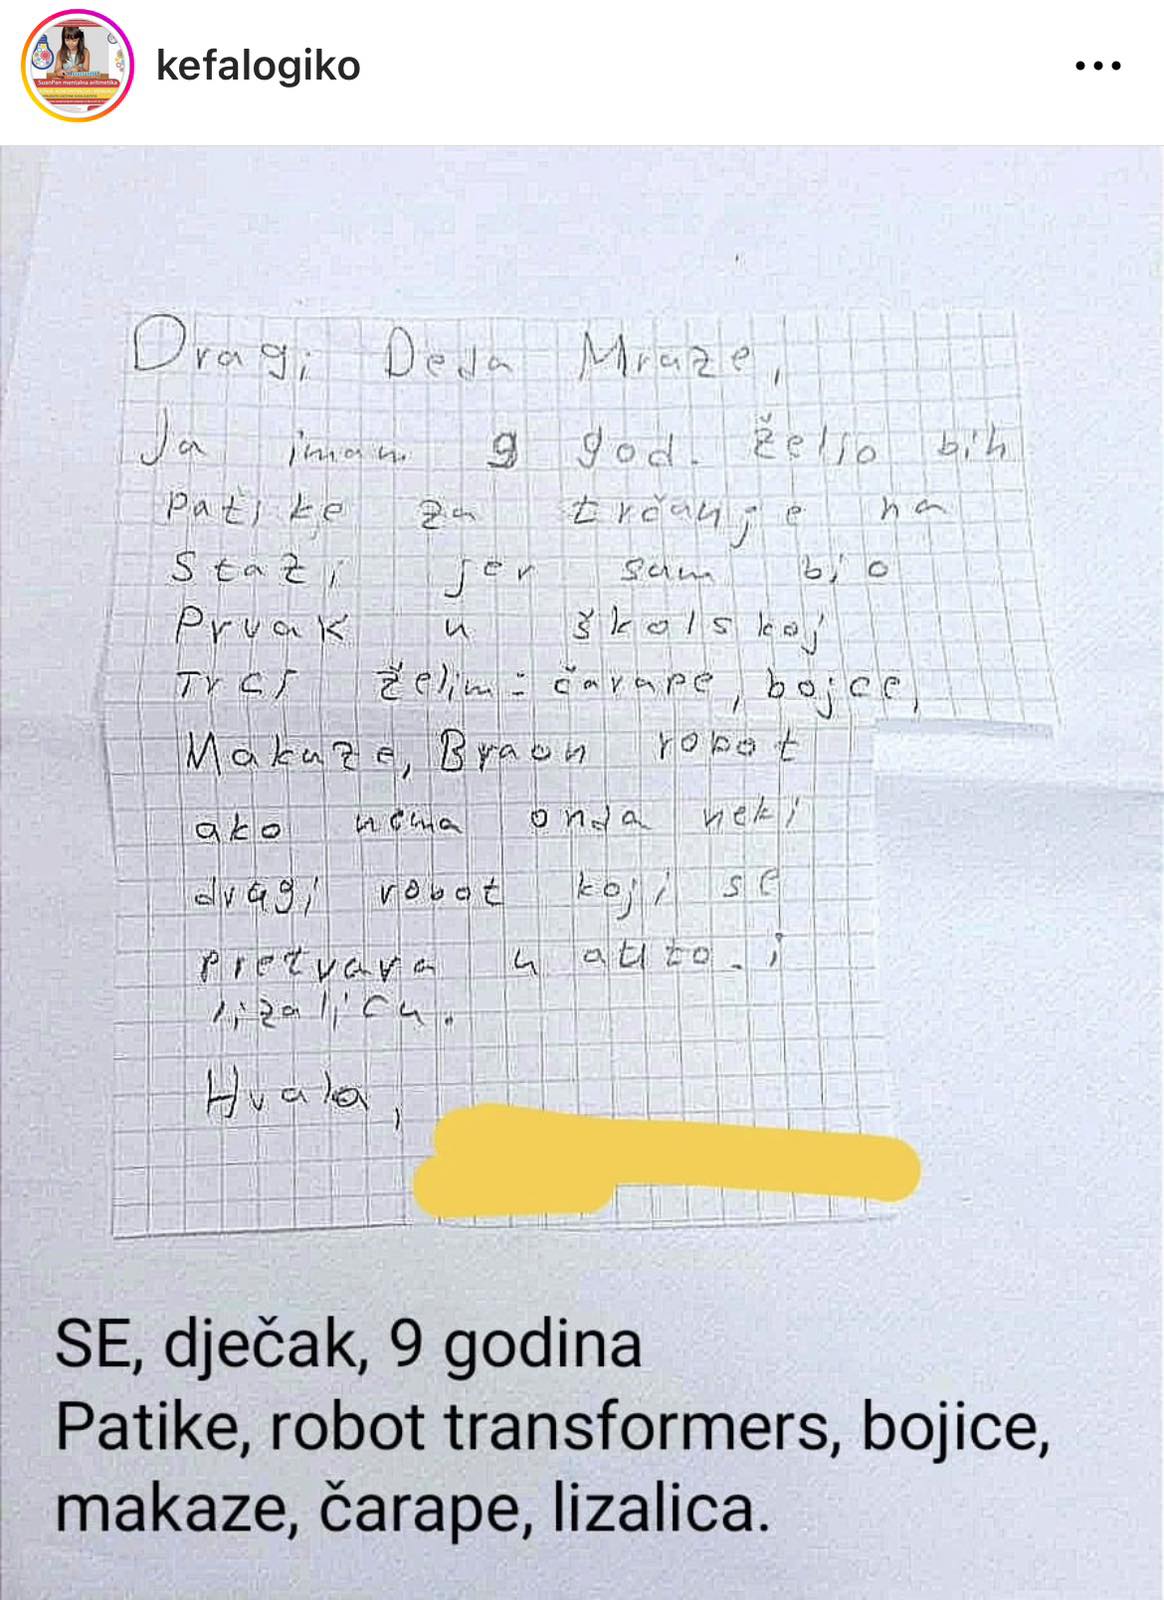 kefalogiko
SuanPan mentalna aritmetika
Dragi Deda Mraze,
Ja imam 9 god. Želio bih
Patike za trčanje na
Stazi jer sam bio
Prvak u školskoj
Trci Želim: čarape, bojce,
Makaze, Braon robot
ako nema onda neki
drugi robot koji se
pretvara u auto. i
lizalicu.
Hvala,
SE, dječak, 9 godina
Patike, robot transformers, bojice,
makaze, čarape, lizalica.